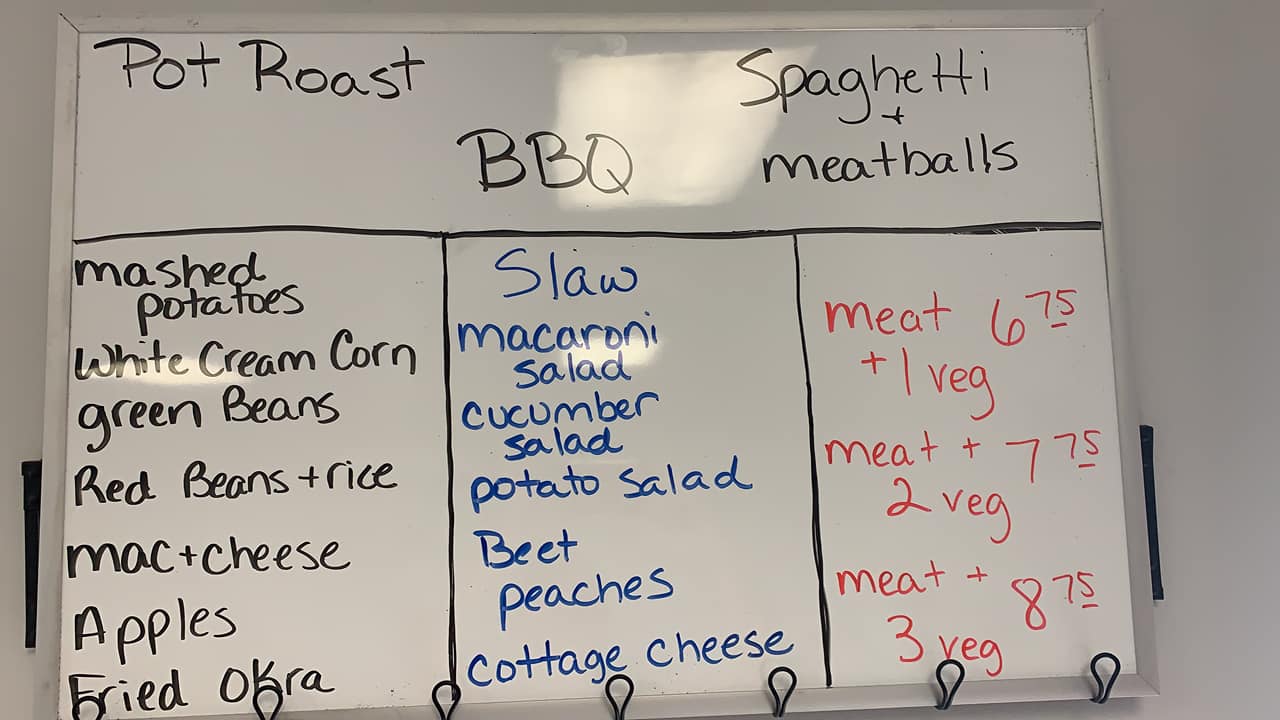 Pot Roast
BBQ
Spaghetti
+
meatballs
mashed
potatoes
White Cream Corn
green Beans
Red Beans + rice
mac + cheese
Apples
Fried Okra
Slaw
macaroni
salad
cucumber
salad
potato salad
Beet
peaches
cottage cheese
meat 6 75
+ 1 veg
meat + 7 75
2 veg
meat + 8 75
3 veg